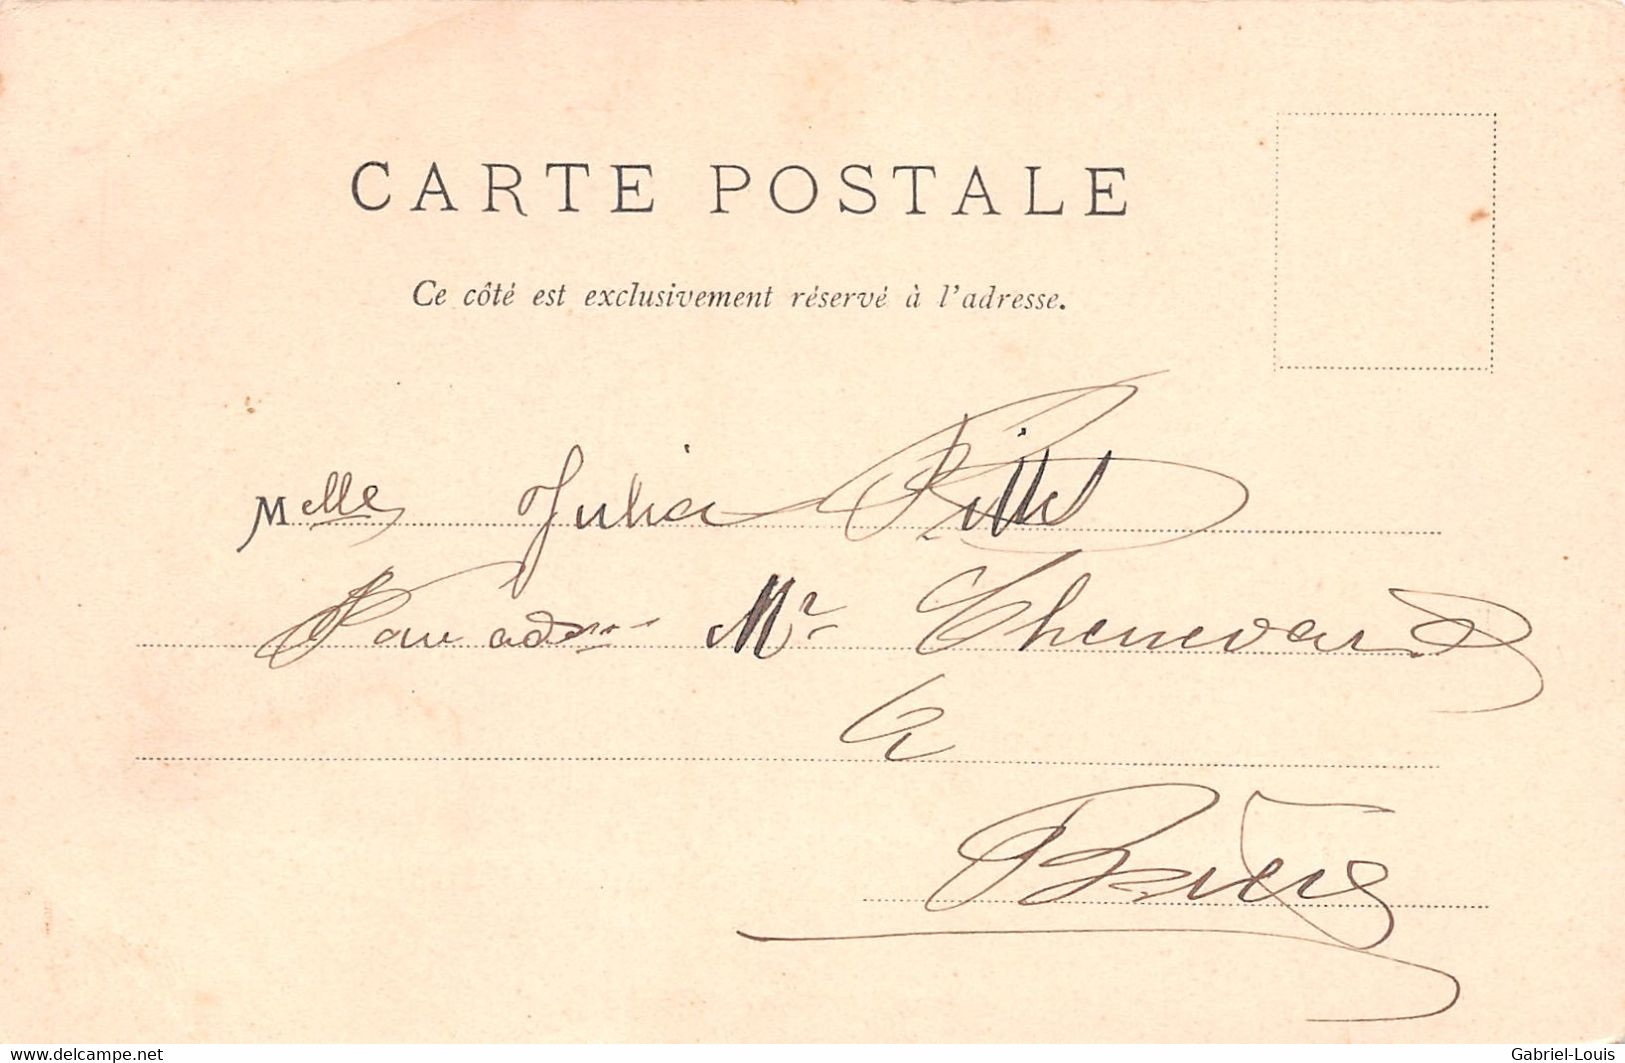 CARTE POSTALE
Ce côté est exclusivement réservé à l'adresse.
Melle Julia
Mr Thenevard
à
www.delcampe.com
Gabriel-Louis